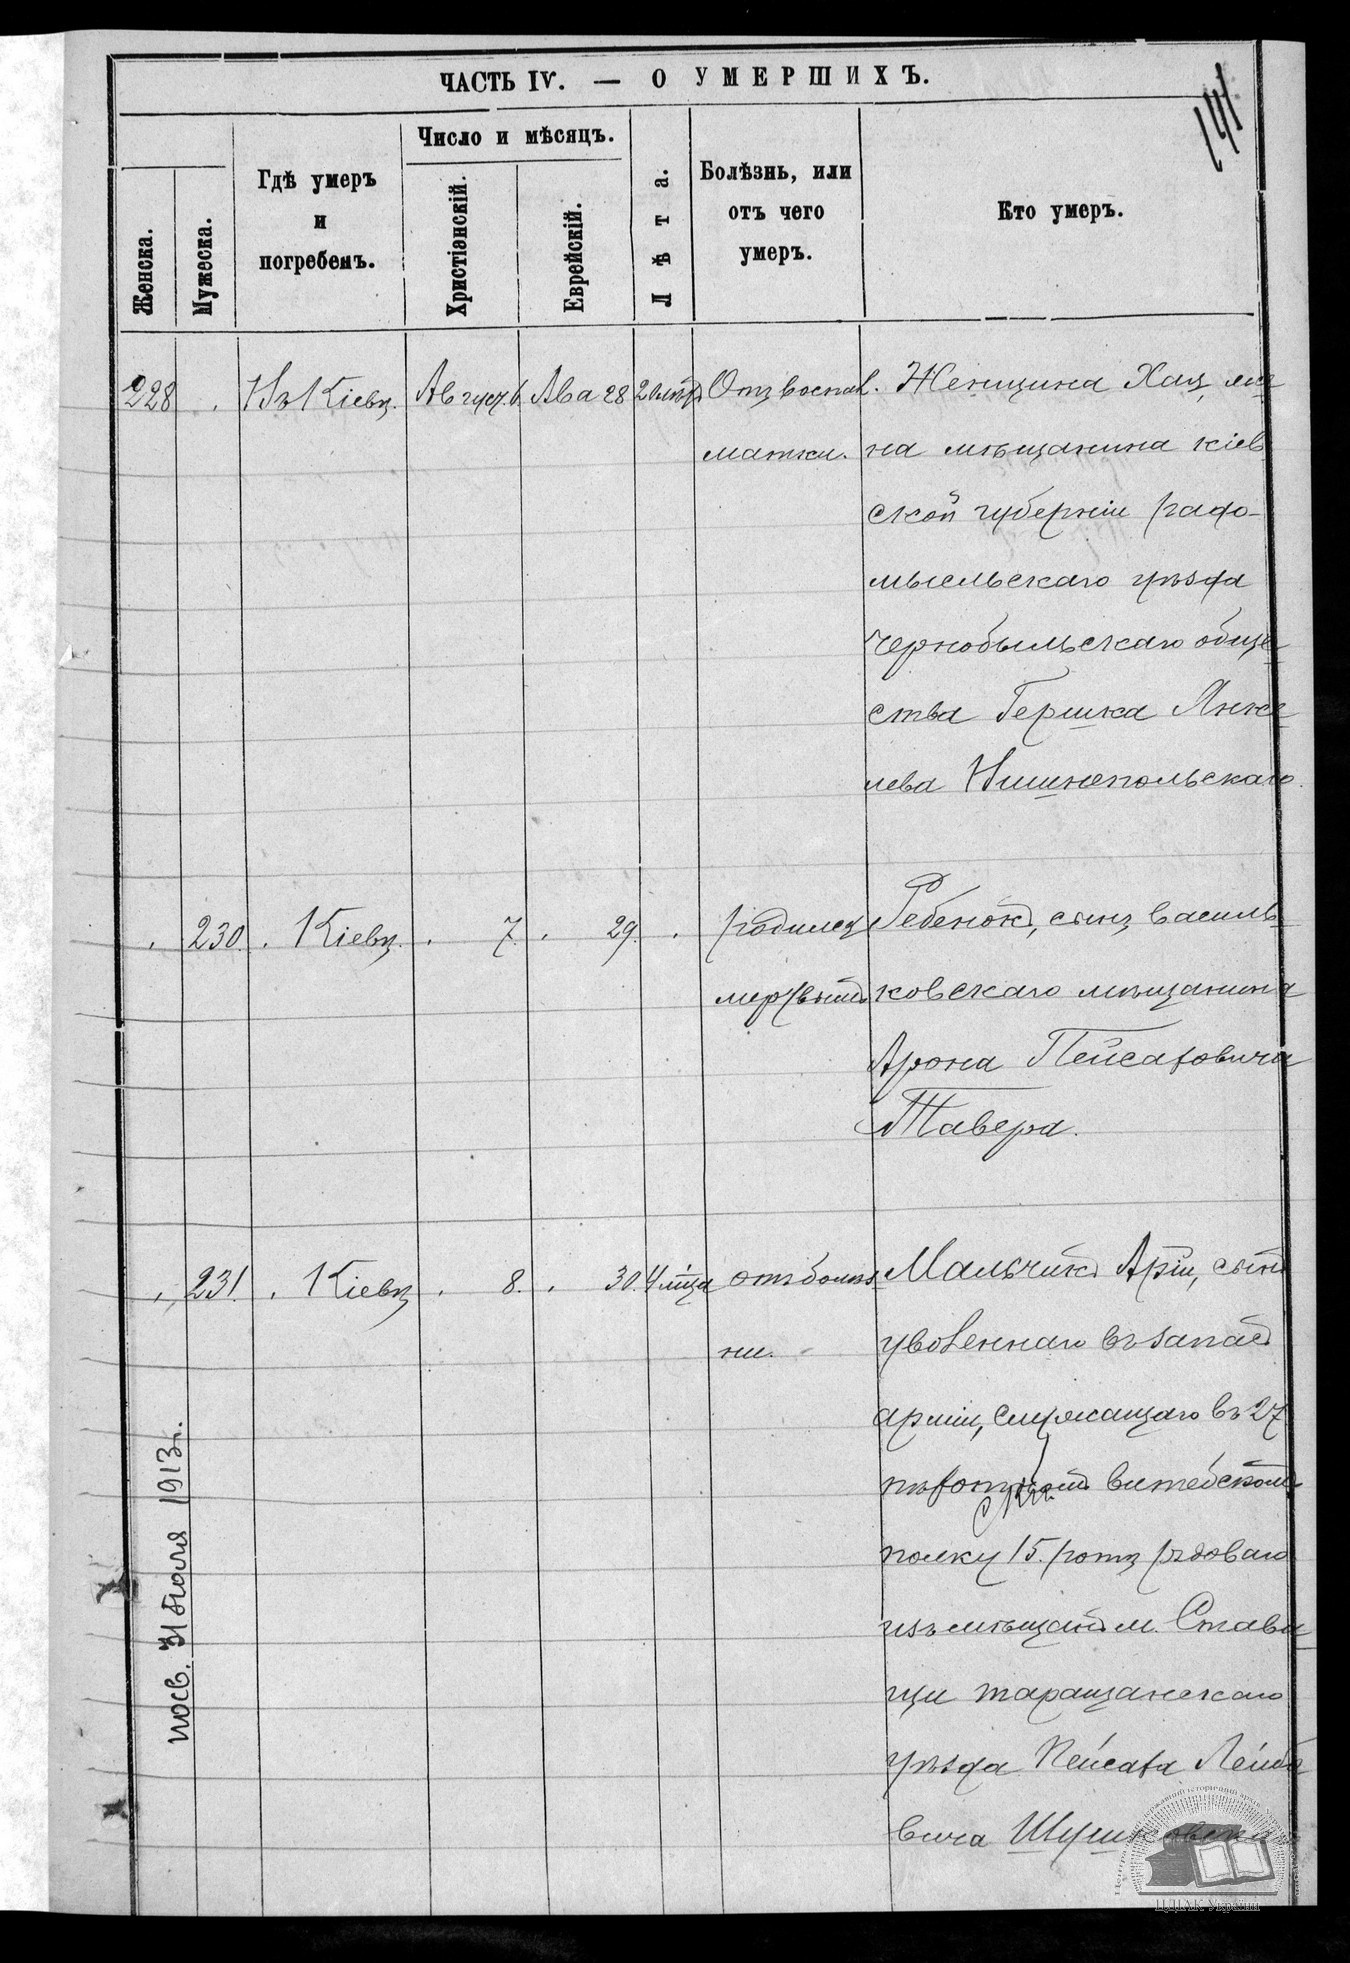 ЧАСТЬ IV. — О УМЕРШИХЪ.
141
Женска.
Мужеска.
Гдѣ умеръ
и
погребенъ.
Число и мѣсяцъ.
Христіанскій.
Еврейскій.
Лѣта.
Болѣзнь, или
отъ чего
умеръ.
Кто умеръ.
228 Въ Кіевѣ. Август. 6 Ава 28 20 лѣтъ Отъ воспал. Женщина Хая, же
матки. на мѣщанина кіев
ской губерніи радо-
мысльскаго уѣзда
чернобыльскаго обще
ства Гершка Янке
лева Вишнепольскаго.
230. Кіевѣ. 7. 29. родился Ребенокъ, сынъ василь
мертвымъ ковскаго мѣщанина
Арона Пейсаховича
Тавера.
231. Кіевѣ 8. 30. 4 мѣца отъ болѣз Мальчикъ Арій, сынъ
ни. уволеннаго въ запасъ
арміи, служащаго въ 27
пѣхотномъ витебскомъ
полку 15. ротѣ рядоваго
изъ мѣщанъ м. Стави
щи таращанскаго
уѣзда Пейсаха Лейбо
вича Шушковскаго
посв. 31 Іюля 1913 г.
ЦДІАК України